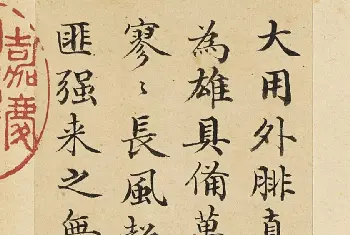 大用外腓真
為雄具備萬
寥〻長風
匪强来之無
嘉慶